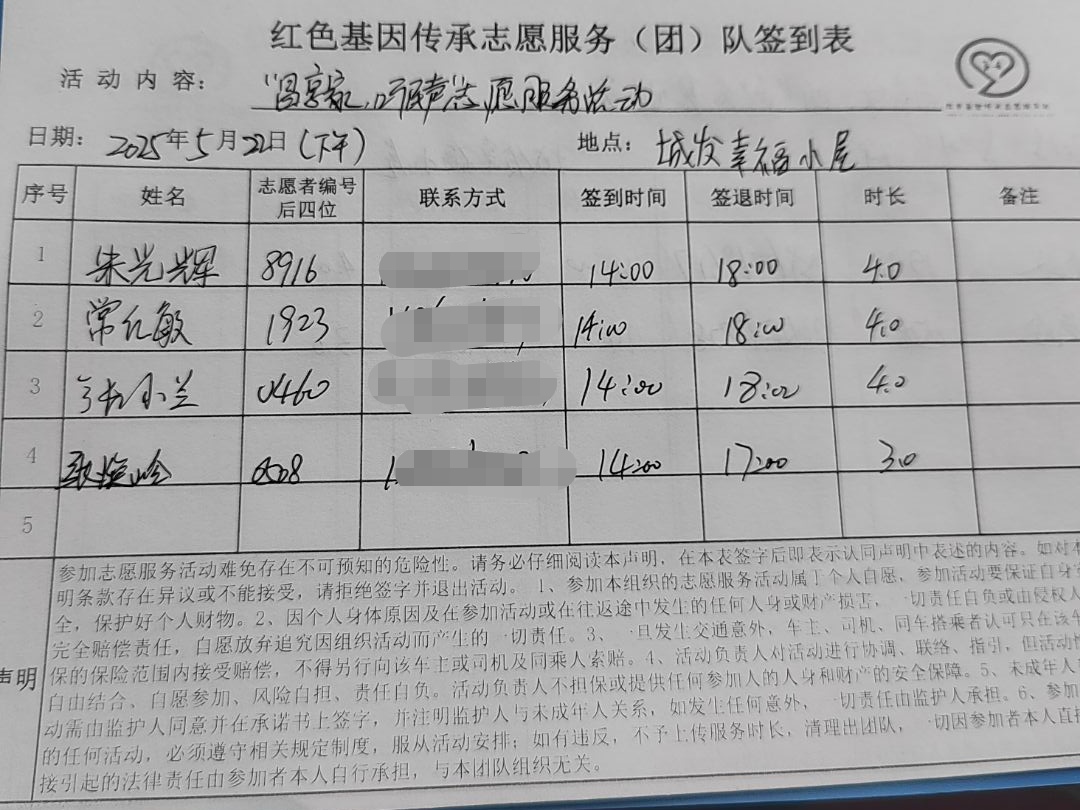 红色基因传承志愿服务（团）队签到表
活动内容：“冯享家，听声志愿服务活动
日期：2025年5月22日(下午) 地点：城发幸福小屋
序号 姓名 志愿者编号后四位 联系方式 签到时间 签退时间 时长 备注
1 朱光辉 8916 14:00 18:00 4.0
2 常红敏 1923 14:00 18:00 4.0
3 张小兰 0460 14:00 18:00 4.0
4 0508 14:00 17:00 3.0
5
声明
参加志愿服务活动难免存在不可预知的危险性。请务必仔细阅读本声明，在本表签字后即表示认同声明中表述的内容。如对本
明条款存在异议或不能接受，请拒绝签字并退出活动。 1、参加本组织的志愿服务活动属于个人自愿，参加活动要保证自身安
全，保护好个人财物。2、因个人身体原因及在参加活动或在往返途中发生的任何人身或财产损害，一切责任自负或由侵权人
完全赔偿责任，自愿放弃追究因组织活动而产生的一切责任。3、一旦发生交通意外，车主、司机、同车搭乘者认可只在该车
保的保险范围内接受赔偿，不得另行向该车主或司机及同乘人索赔。4、活动负责人对活动进行协调、联络、指引，但活动性
自由结合、自愿参加、风险自担、责任自负。活动负责人不担保或提供任何参加人的人身和财产的安全保障。5、未成年人
动需由监护人同意并在承诺书上签字，并注明监护人与未成年人关系，如发生任何意外，一切责任由监护人承担。6、参加
的任何活动，必须遵守相关规定制度，服从活动安排；如有违反，不予上传服务时长，清理出团队，一切因参加者本人直接
接引起的法律责任由参加者本人自行承担，与本团队组织无关。